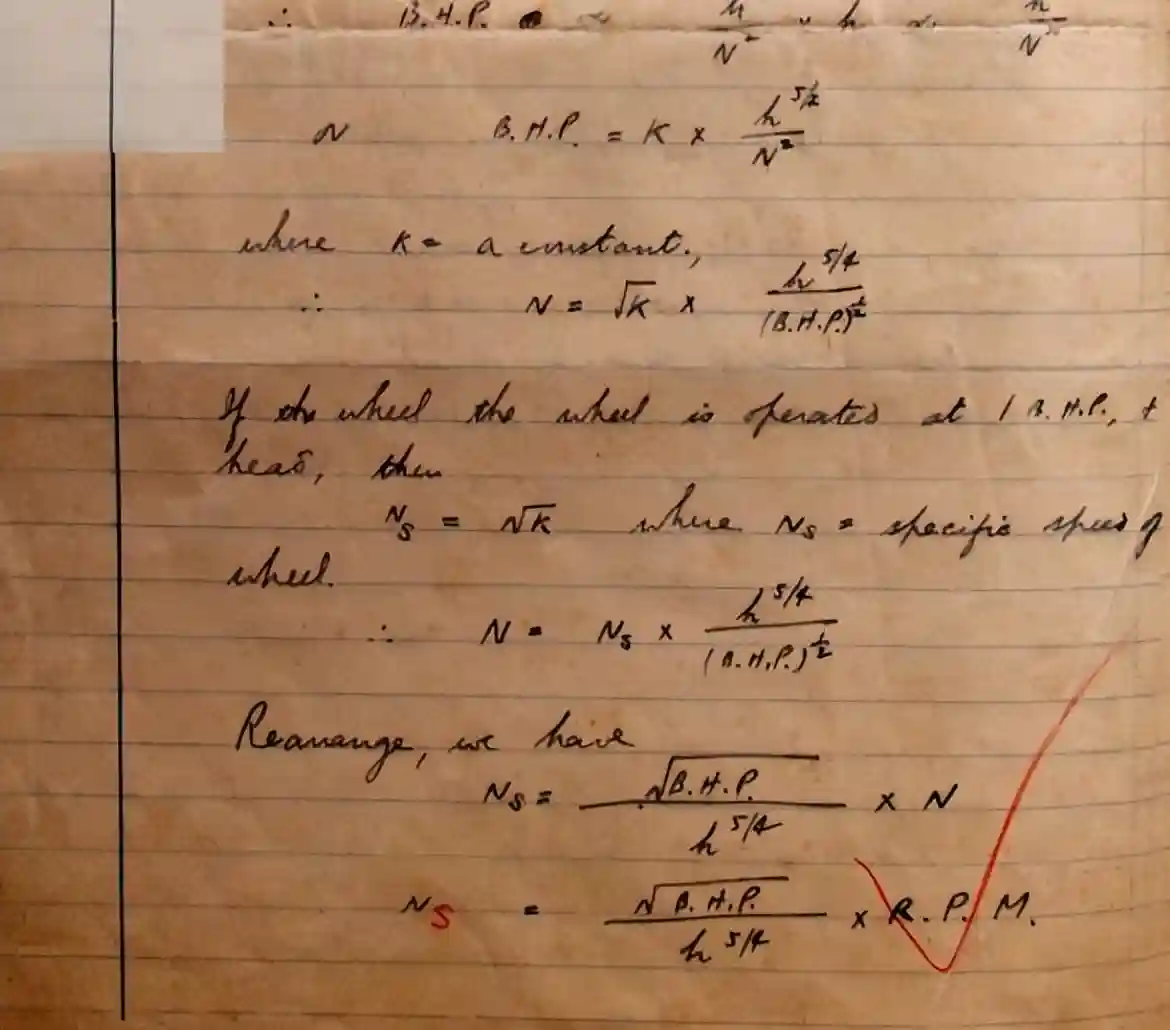 ∴ B.H.P. ∝ h/N² × h ∝
or B.H.P. = K × h^5/2 / N²
where K = a constant.,
∴ N = √K × h^5/4 / (B.H.P.)^1/2
If the wheel the wheel is operated at 1 B.H.P., +
head, then
N_S = √K where N_S = specific speed of
wheel.
∴ N = N_S × h^5/4 / (B.H.P.)^1/2
Rearrange, we have
N_S = √B.H.P. / h^5/4 × N
N_S = √B.H.P. / h^5/4 × R.P.M.